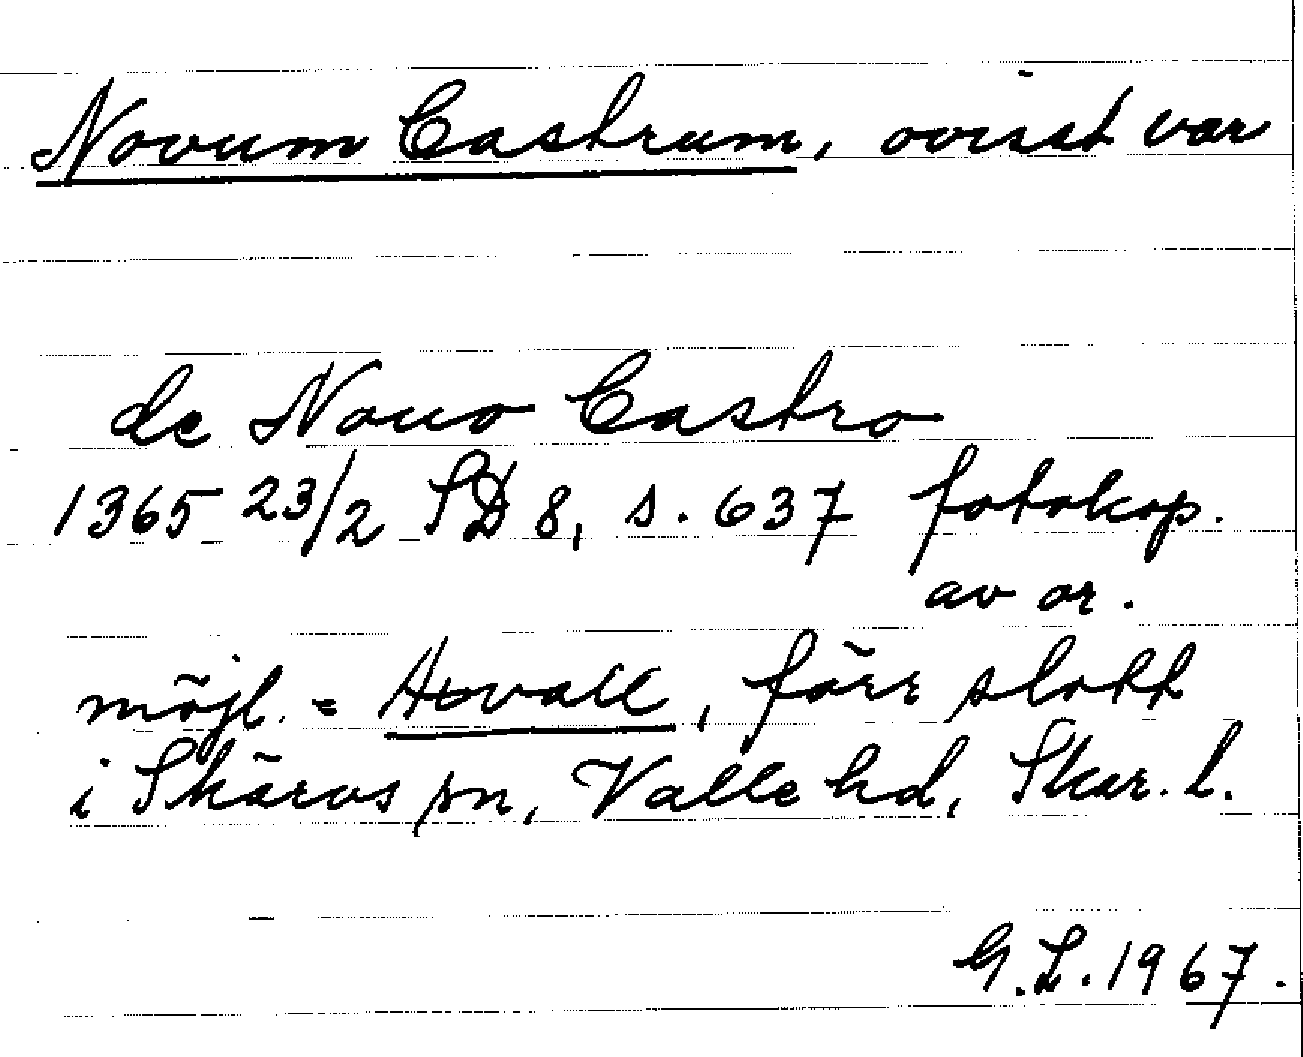 Novum Castrum, ovisst var
de Nouo Castro
1365 23/2 SD 8, s. 637 fotokop.
av or.
möjl. = Axvall, förr slott
i Skärvs sn, Valle hd, Skar. l.
G.L. 1967.